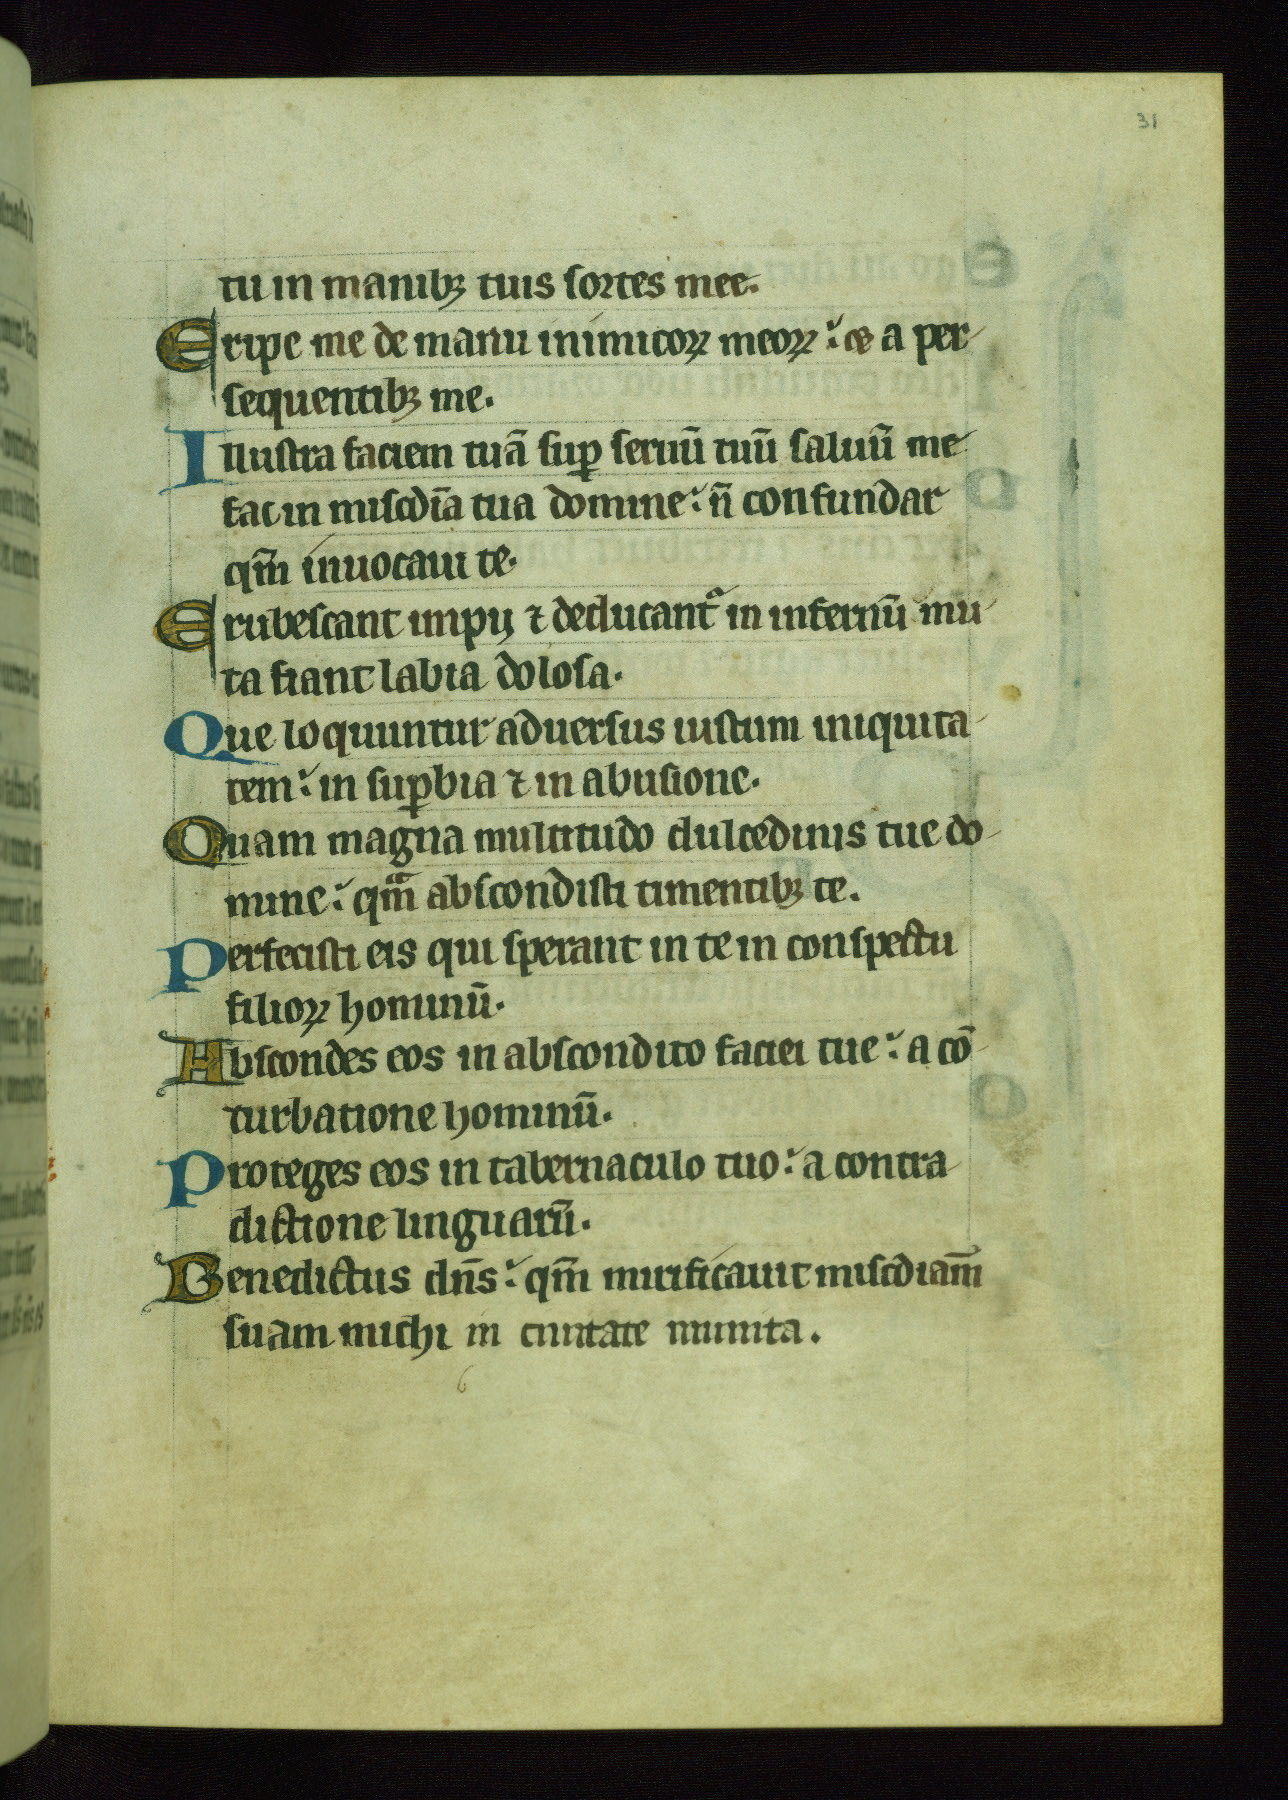 31
tu in manibꝫ tuis sortes mee.
Eripe me de manu inimicoꝝ meoꝝ : et a per
sequentibꝫ me.
Illustra faciem tuā suꝑ seruū tuū saluū me
fac in misc̄dia tua domine : n̄ confundar
qm̄ inuocaui te.
Erubescant impij ⁊ deducant᷑ in infernū mu
ta fiant labia dolosa.
Que loquuntur aduersus iustum iniquita
tem : in suꝑbia ⁊ in abusione.
Quam magna multitudo dulcedinis tue do
mine : qm̄ abscondisti timentibꝫ te.
Perfecisti eis qui sperant in te in conspectu
filioꝝ hominū.
Abscondes eos in abscondito faciei tue : a cō
turbatione hominū.
Proteges eos in tabernaculo tuo : a contra
dictione linguarū.
Benedictus dn̄s : qm̄ mirificauit misc̄diam̄
suam michi in ciuitate munita.